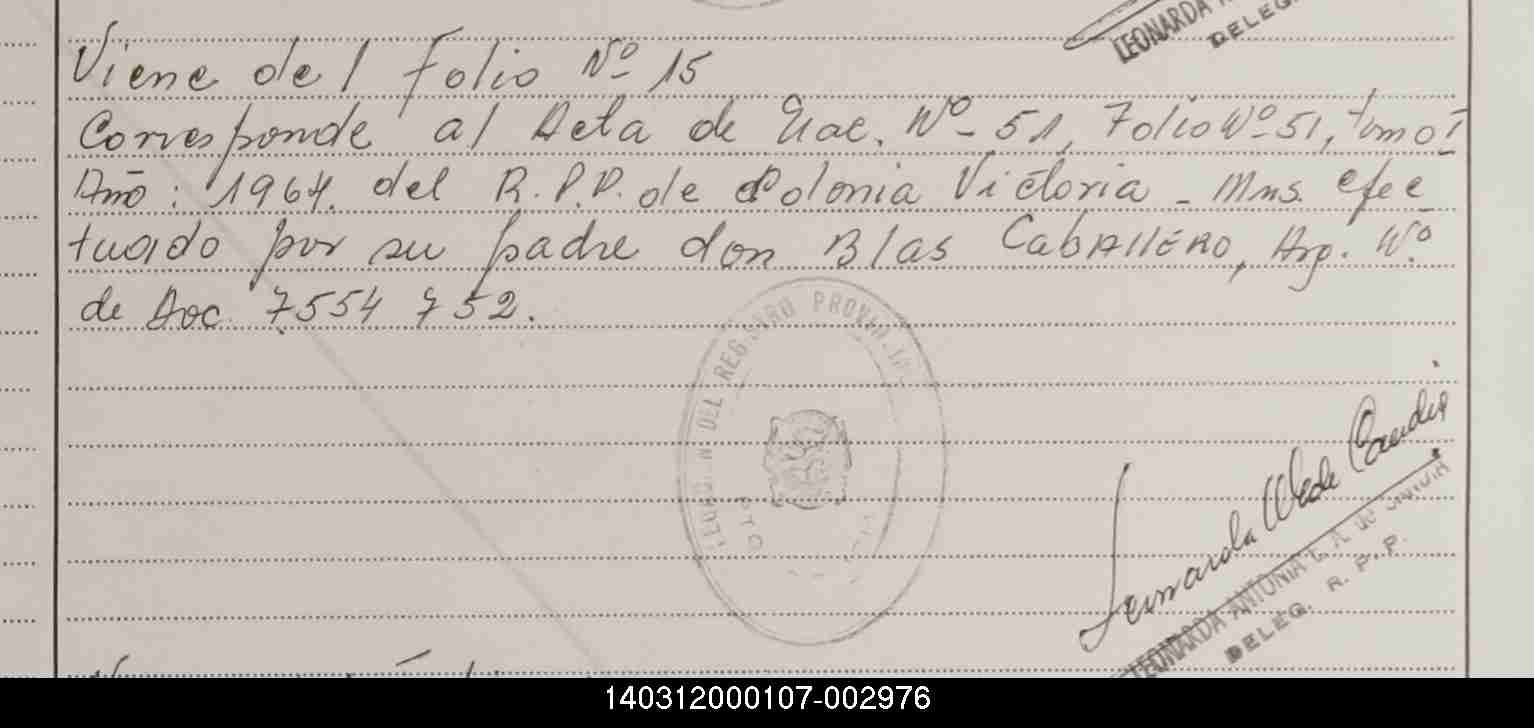 LEONARDA
DELEG.
Viene del Folio Nº 15
Corresponde al Acta de Nac. Nº 51, Folio Nº 51, tomo I
Año: 1964. del R.P.P. de Colonia Victoria - Mns. efec
tuado por su padre don Blas CabAllERO, Arg. Nº
de Doc. 7554 752.
DEL REGISTRO PROVINCIAL
PTO
Leonarda
LEONARDA ANTONIA
DELEG. R. P. P.
140312000107-002976